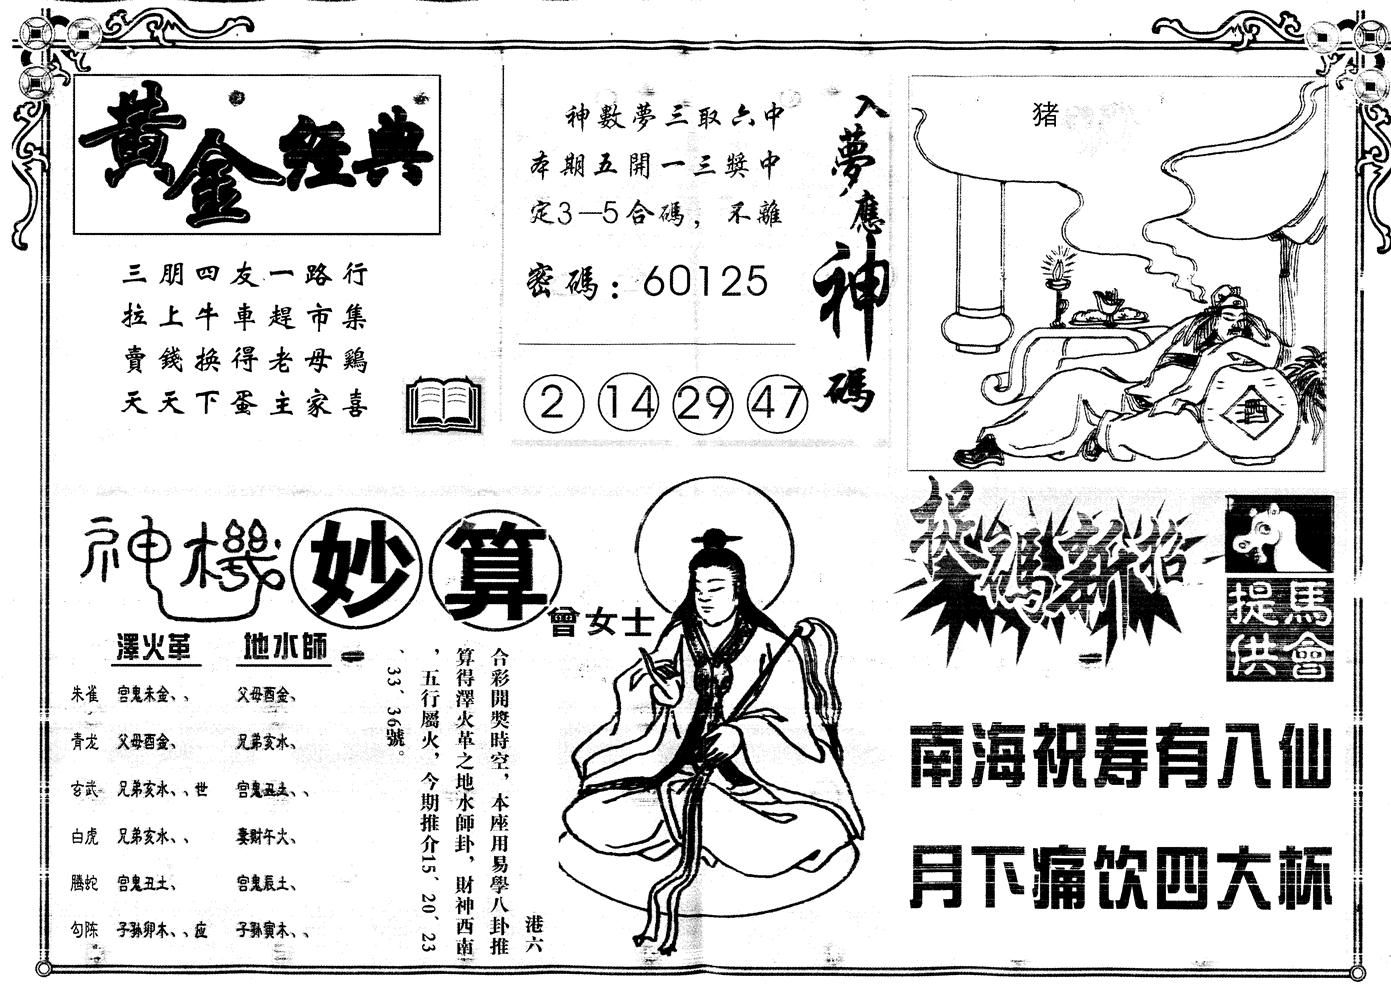 黃金經典
三朋四友一路行
拉上牛車趕市集
賣錢換得老母鷄
天天下蛋主家喜
神數夢三取六中
本期五開一三獎中
定3—5合碼，不離
密碼：60125
2 14 29 47
入夢應神碼
猪
酒
神機妙算
曾女士
澤火革 地水師
朱雀 官鬼未金、、 父母酉金、
青龙 父母酉金、 兄弟亥水、
玄武 兄弟亥水、、世 官鬼丑土、、
白虎 兄弟亥水、、 妻財午火、
騰蛇 官鬼丑土、 官鬼辰土、
勾陈 子孫卯木、、应 子孫寅木、、
港六
合彩開獎時空，本座用易學八卦推
算得澤火革之地水師卦，財神西南
，五行屬火，今期推介15、20、23
、33、36號。
捉碼新招
馬會提供
南海祝寿有八仙
月下痛饮四大杯